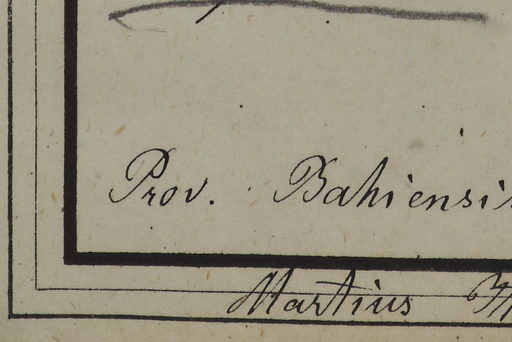 Prov. Bahiensis
Martius